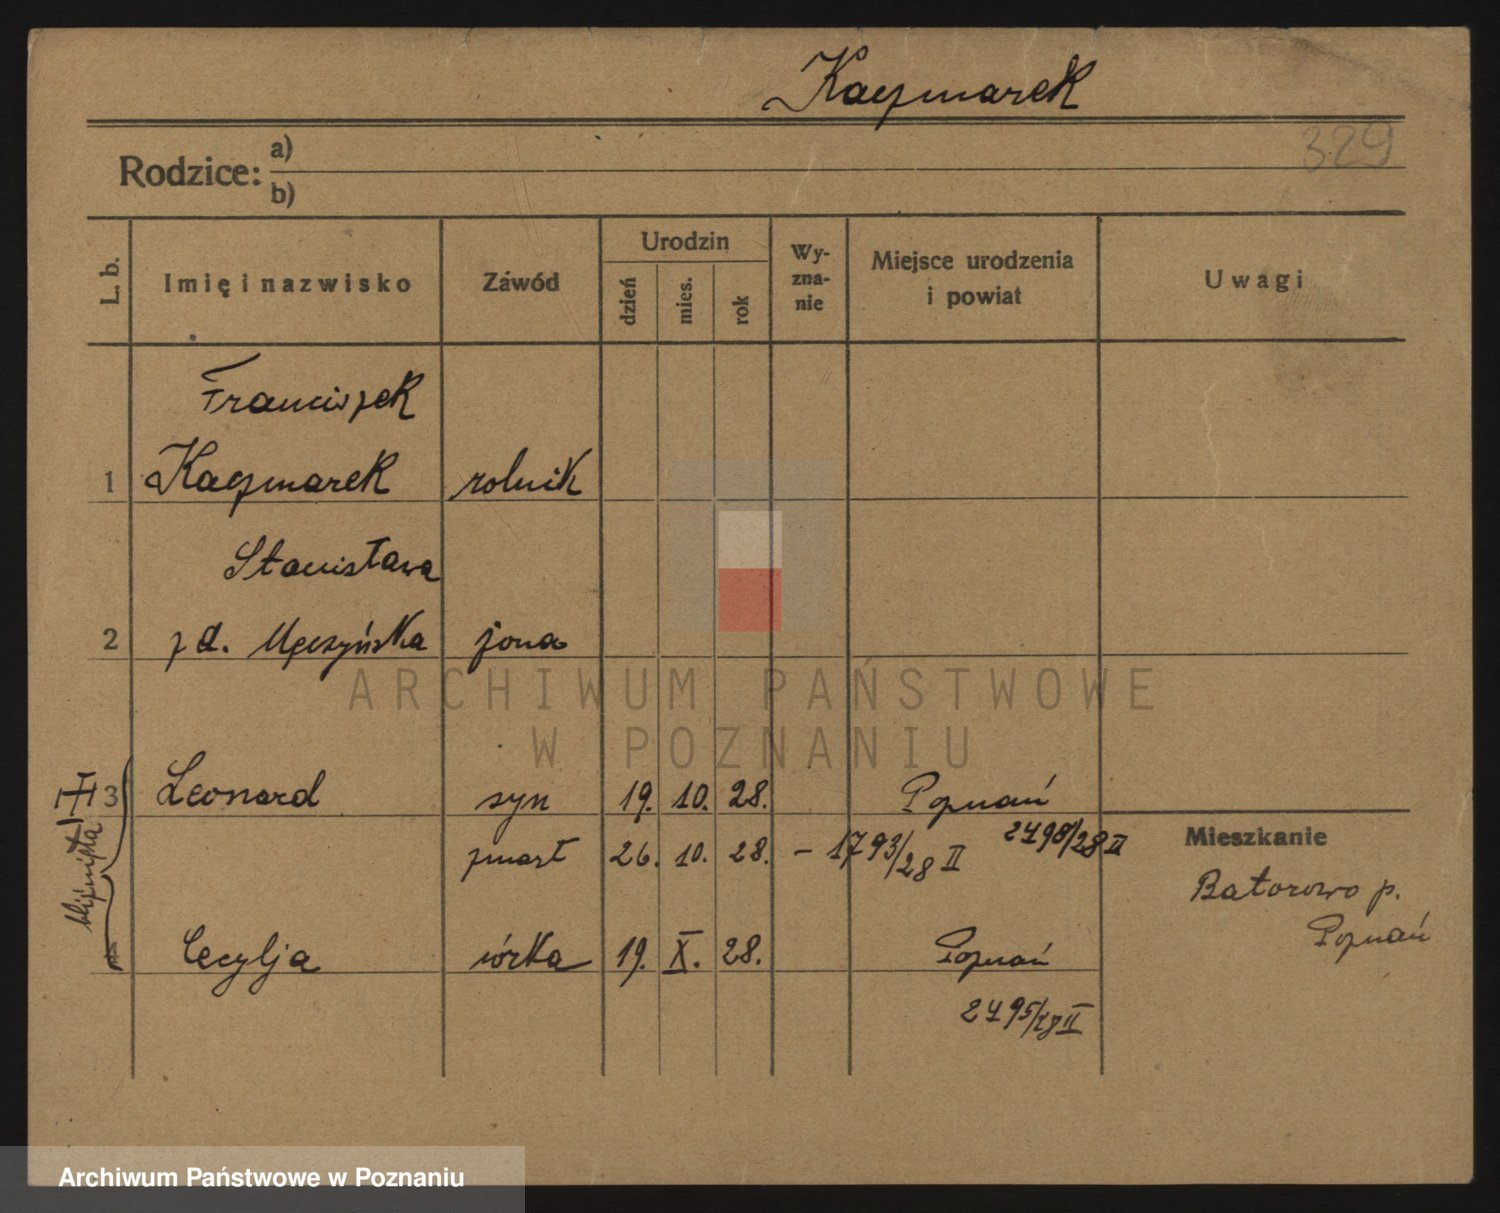 Kaczmarek
329
Rodzice: a)
b)
L. b.
Imię i nazwisko
Zawód
Urodzin
dzień
mies.
rok
Wy-
zna-
nie
Miejsce urodzenia
i powiat
Uwagi
Franciszek
1 Kaczmarek rolnik
Stanisława
2 z d. Męczyńska żona
ARCHIWUM PAŃSTWOWE
W POZNANIU
3 Leonard syn 19. 10. 28. Poznań
2498/28 II
zmarł 26. 10. 28. – 1793/28 II
bliźnięta
Mieszkanie
Batorowo p.
Poznań
Cecylja córka 19. X. 28. Poznań
2495/28 II
Archiwum Państwowe w Poznaniu